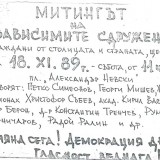 МИТИНГЪТ
НА
НЕЗАВИСИМИТЕ СДРУЖЕН
ГРАЖДАНИ ОТ СТОЛИЦАТА И СТРАНАТА, Щ
18. XI. 89г. СЪБОТА
ПЛ. „АЛЕКСАНДЪР НЕВСКИ
ПЕТКО СИМЕОНОВ, ГЕОРГИ МИШЕВ, Ж
ХРИСТОФОР СЪБЕВ, АКАД. КИРИЛ ВАС
БЕРОВ, Д-Р КОНСТАНТИН ТРЕНЧЕВ, РУМ
РАДОЙ РАЛИН И ДР.
СЕГА! ДЕМОКРАЦИЯ
ГЛАСНОСТ ВЕДНАГА